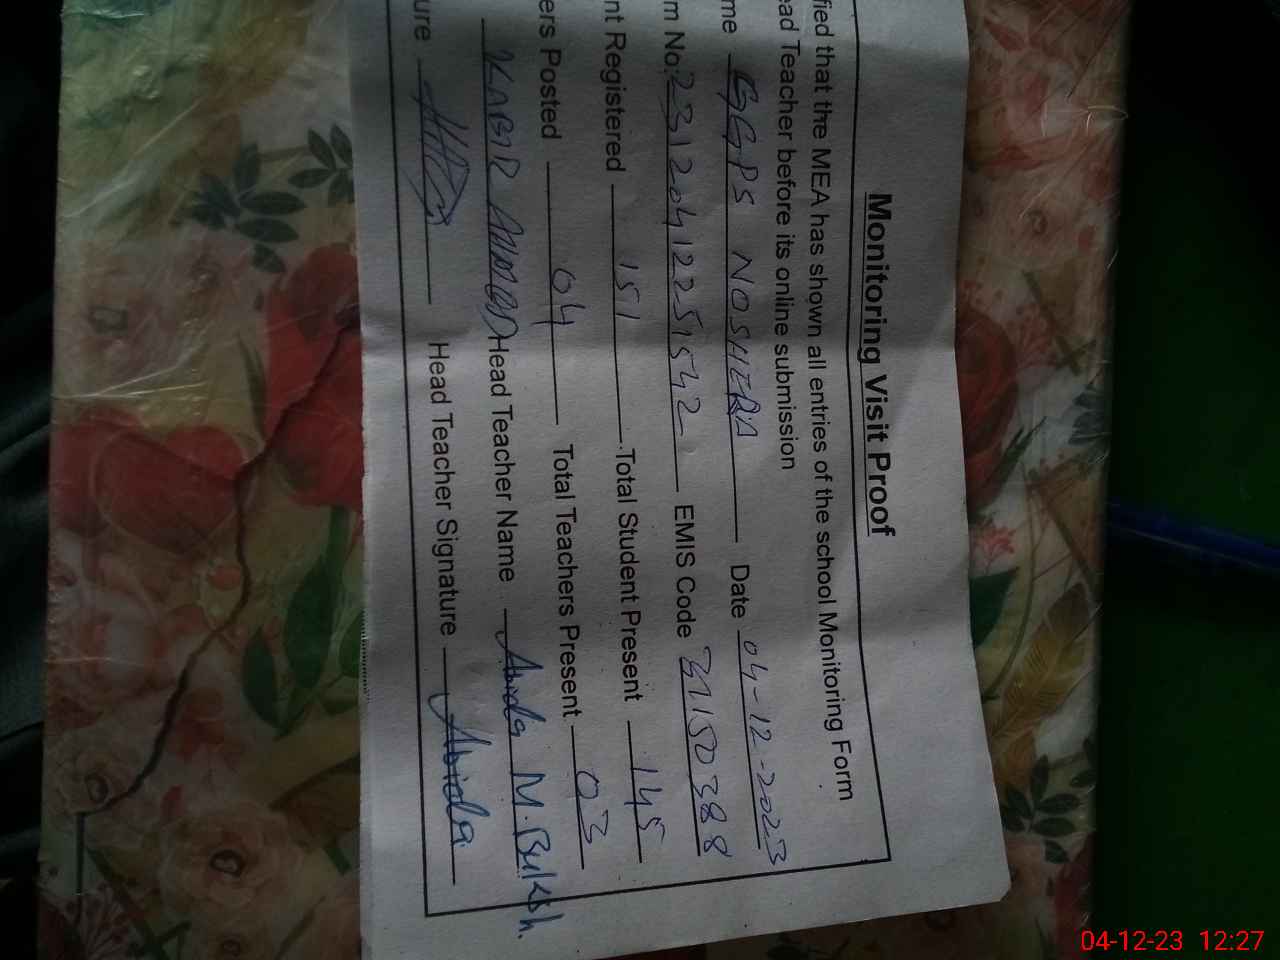 Monitoring Visit Proof
fied that the MEA has shown all entries of the school Monitoring Form
ead Teacher before its online submission
me GGPS NOSHERA Date 04-12-2023
m No. 23120412251542 EMIS Code 31150388
nt Registered 151 Total Student Present 145
ers Posted 04 Total Teachers Present 03
KABIR AHMED Head Teacher Name Abida M. Buksh.
ure Head Teacher Signature Abida
04-12-23 12:27